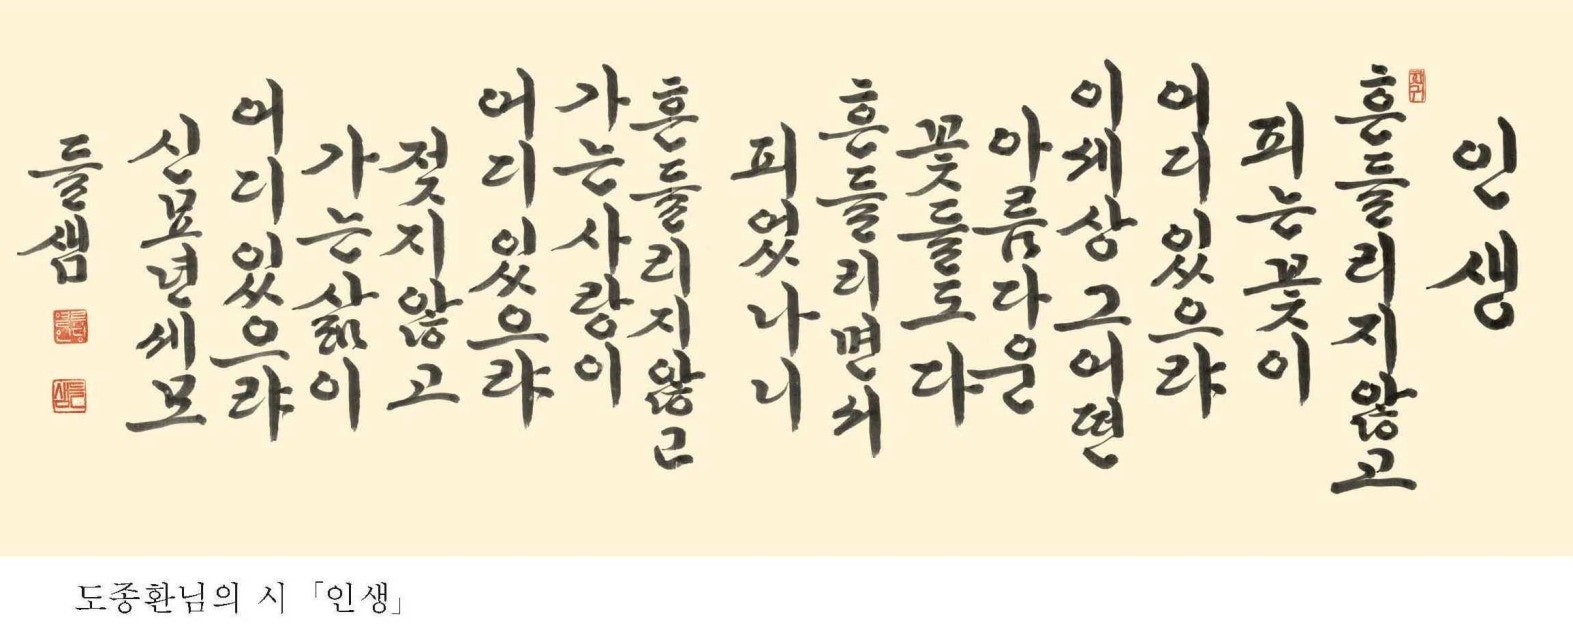 인생
흔들리지 않고
피는 꽃이
어디 있으랴
이 세상 그 어떤
아름다운
꽃들도 다
흔들리면서
피었나니
흔들리지 않고
가는 사랑이
어디 있으랴
젖지 않고
가는 삶이
어디 있으랴
신묘년 세모
들샘
도종환님의 시 「인생」